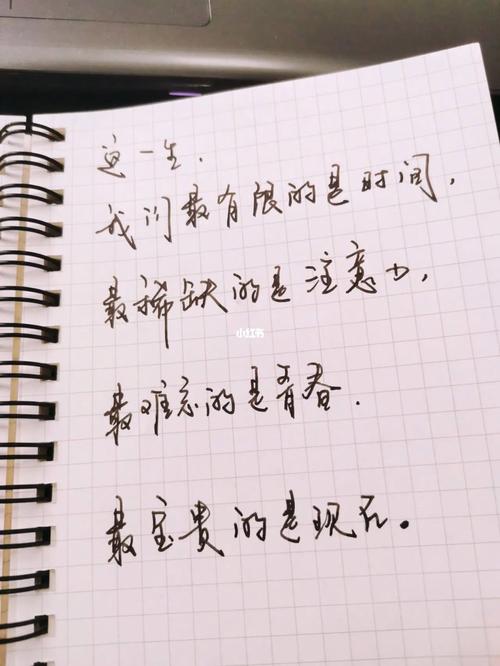 这一生.
我们最有限的是时间,
最稀缺的是注意力,
小红书
最难忘的是青春.
最宝贵的是现在。